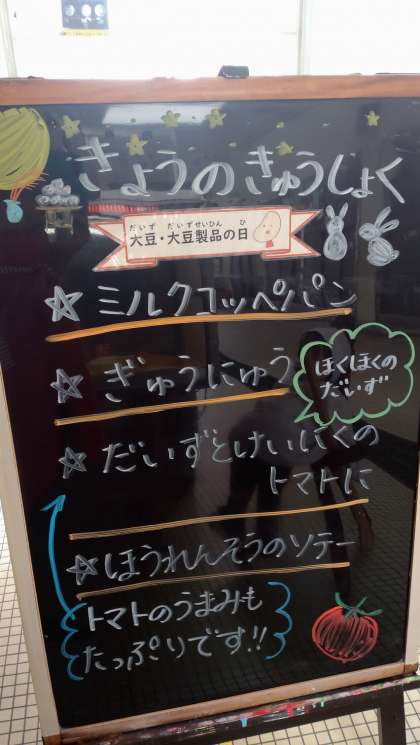 きょうのきゅうしょく
だいず だいずせいひん ひ
大豆・大豆製品の日
☆ミルクコッペパン
☆ぎゅうにゅう
ほくほくの
だいず
☆だいずとけいにくの
トマトに
☆ほうれんそうのソテー
トマトのうまみも
たっぷりです!!